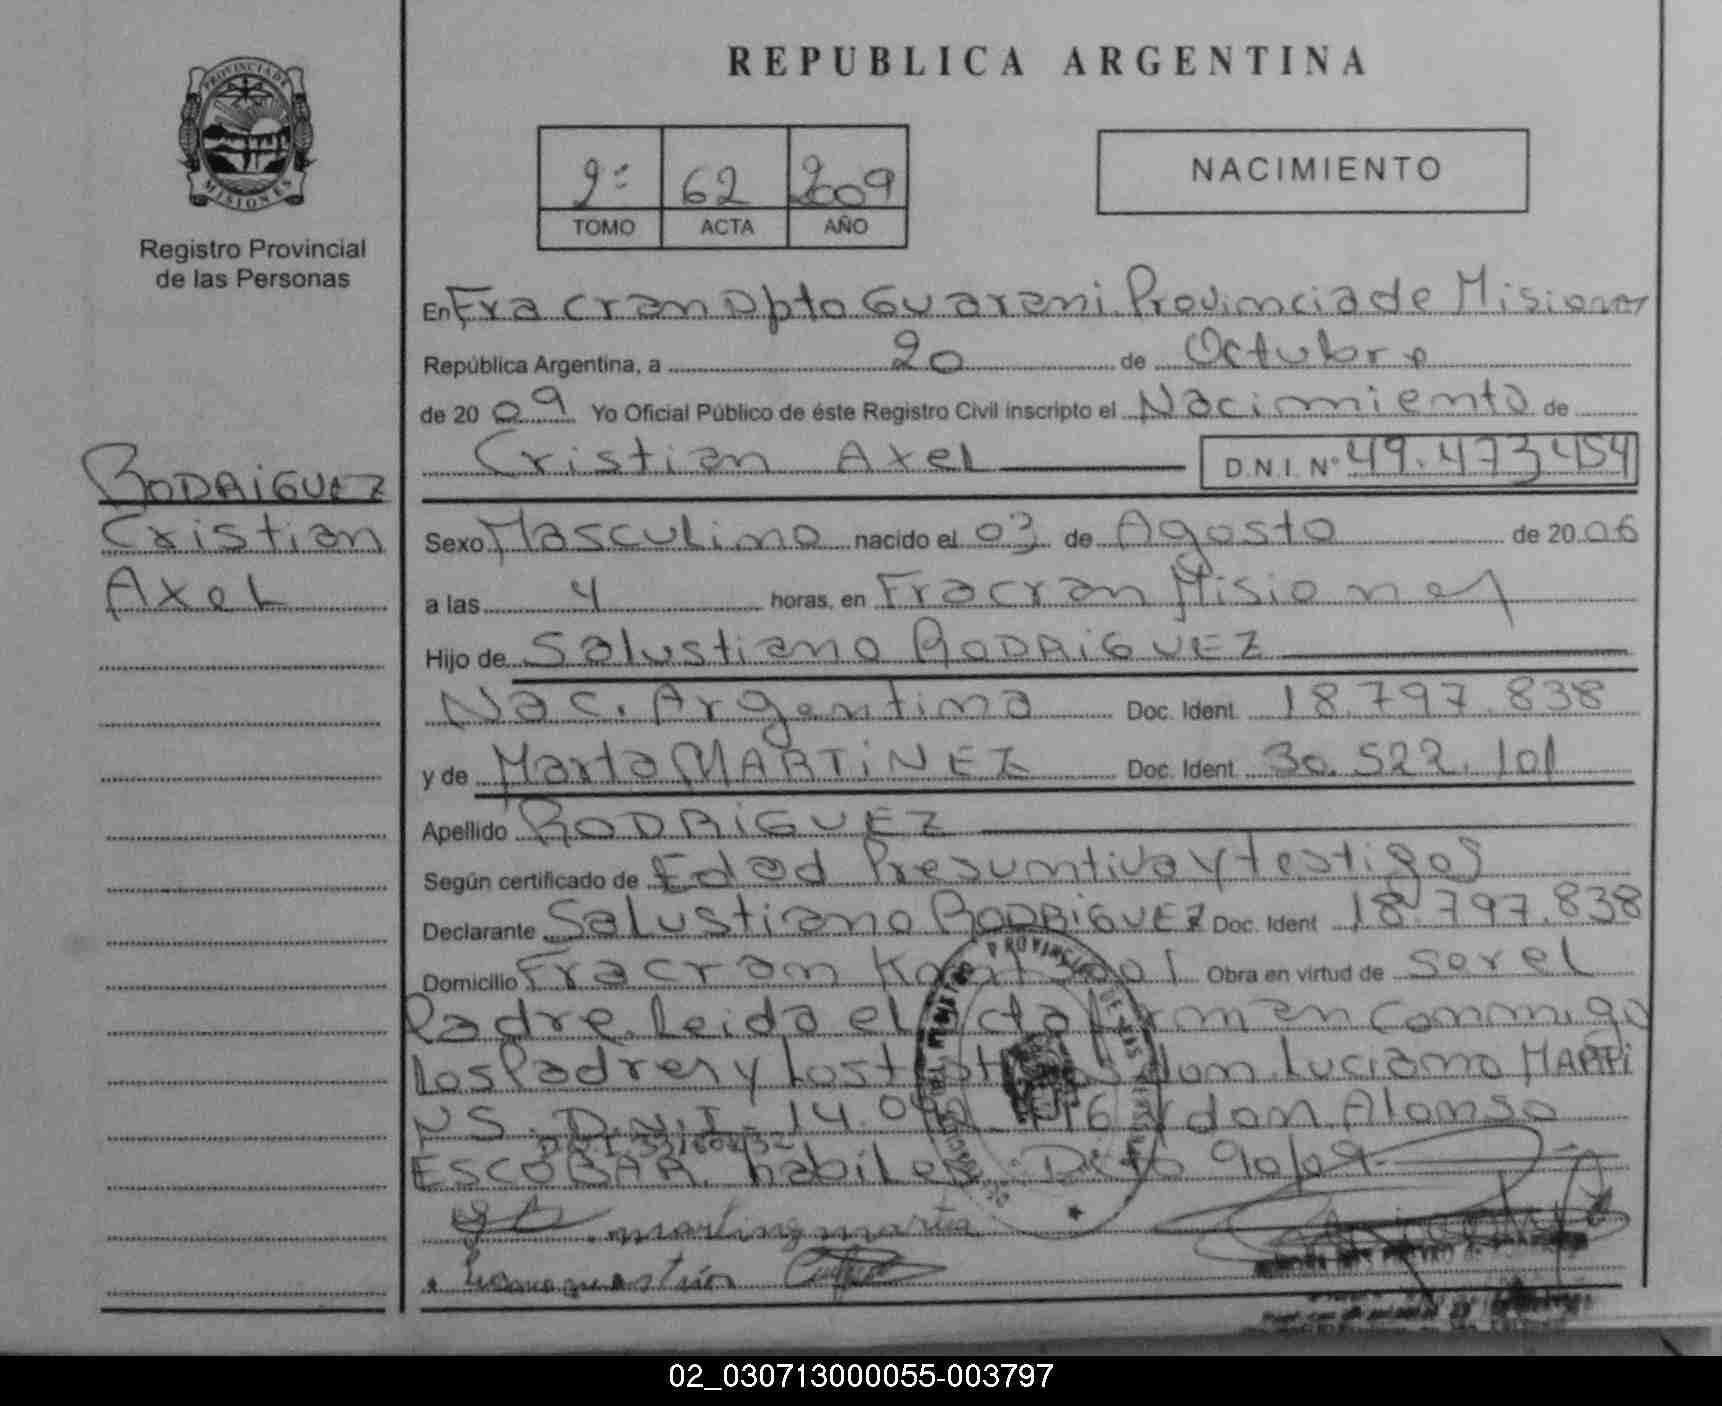 REPUBLICA ARGENTINA
PROVINCIA DE
MISIONES
Registro Provincial
de las Personas
2º 62 2009
TOMO ACTA AÑO
NACIMIENTO
En Fracran Dpto Guarani Provincia de Misiones
República Argentina, a 20 de Octubre
de 20 09 Yo Oficial Público de éste Registro Civil inscripto el Nacimiento de
Cristian Axel D.N.I. Nº 49.473454
RODRiGUEZ
Cristian
Axel
Sexo Masculino nacido el 03 de Agosto de 20 06
a las 4 horas, en Fracran Misiones
Hijo de Salustiano RODRiGUEZ
Nac. Argentino Doc. Ident. 18.797.838
y de Marta MARTiNEZ Doc. Ident. 30.522.101
Apellido RODRiGUEZ
Según certificado de Edad Presuntiva y testigos
Declarante Salustiano RODRiGUEZ Doc. Ident 18.797.838
Domicilio Fracran Obra en virtud de ser el
Padre. Leida el acta firman conmigo
Los Padres y Los testigos don Luciano MARTi
NS. D.N.I. 14. don Alonso
ESCOBAR habiles. Dcto 90/09
martines marta
02_030713000055-003797